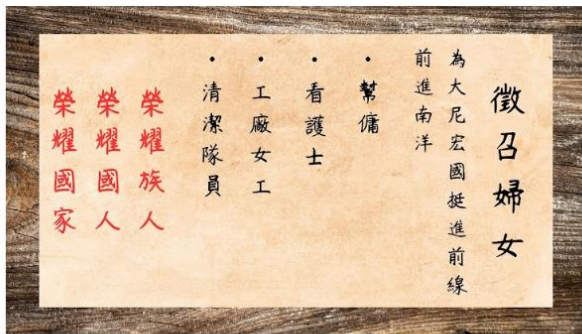 徵召婦女
為大尼宏國挺進前線
前進南洋
• 幫傭
• 看護士
• 工廠女工
• 清潔隊員
榮耀族人
榮耀國人
榮耀國家